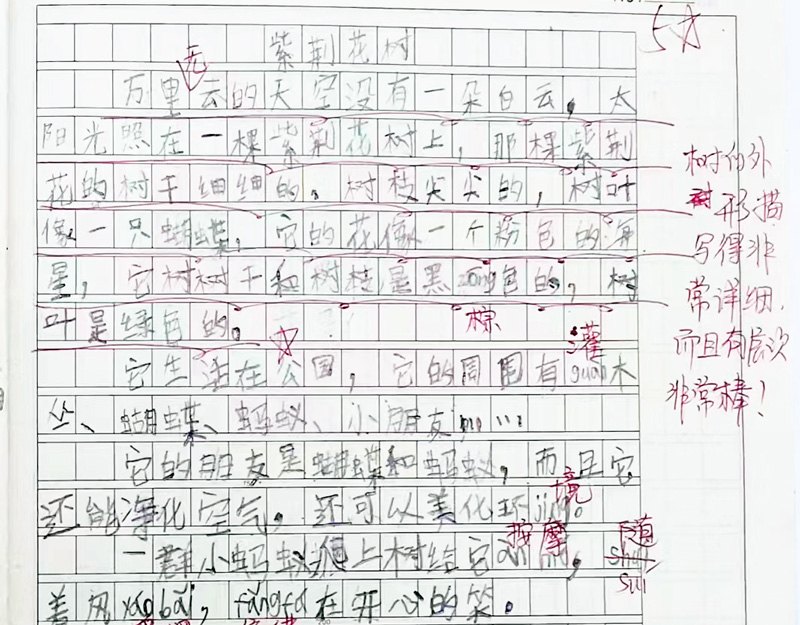 5☆
紫荆花树
无
万里云的天空没有一朵白云，太
阳光照在一棵紫荆花树上，那棵紫荆
花的树干细细的，树枝尖尖的，树叶
像一只蝴蝶，它的花像一个粉色的海
星，它树树干和树枝是黑zōng色的，树
叶是绿色的。
棕
灌
它生活在公园，它的周围有guàn木
丛、蝴蝶、蚂蚁、小朋友……
它的朋友是蝴蝶和蚂蚁，而且它
境
还能净化空气，还可以美化环jìng。
按摩
随
一群小蚂蚁爬上树给它àn mó，shuí
suí
着风yáo bǎi，fǎng fú在开心的笑。
树的外
形描
写得非
常详细，
而且有层次
非常棒！